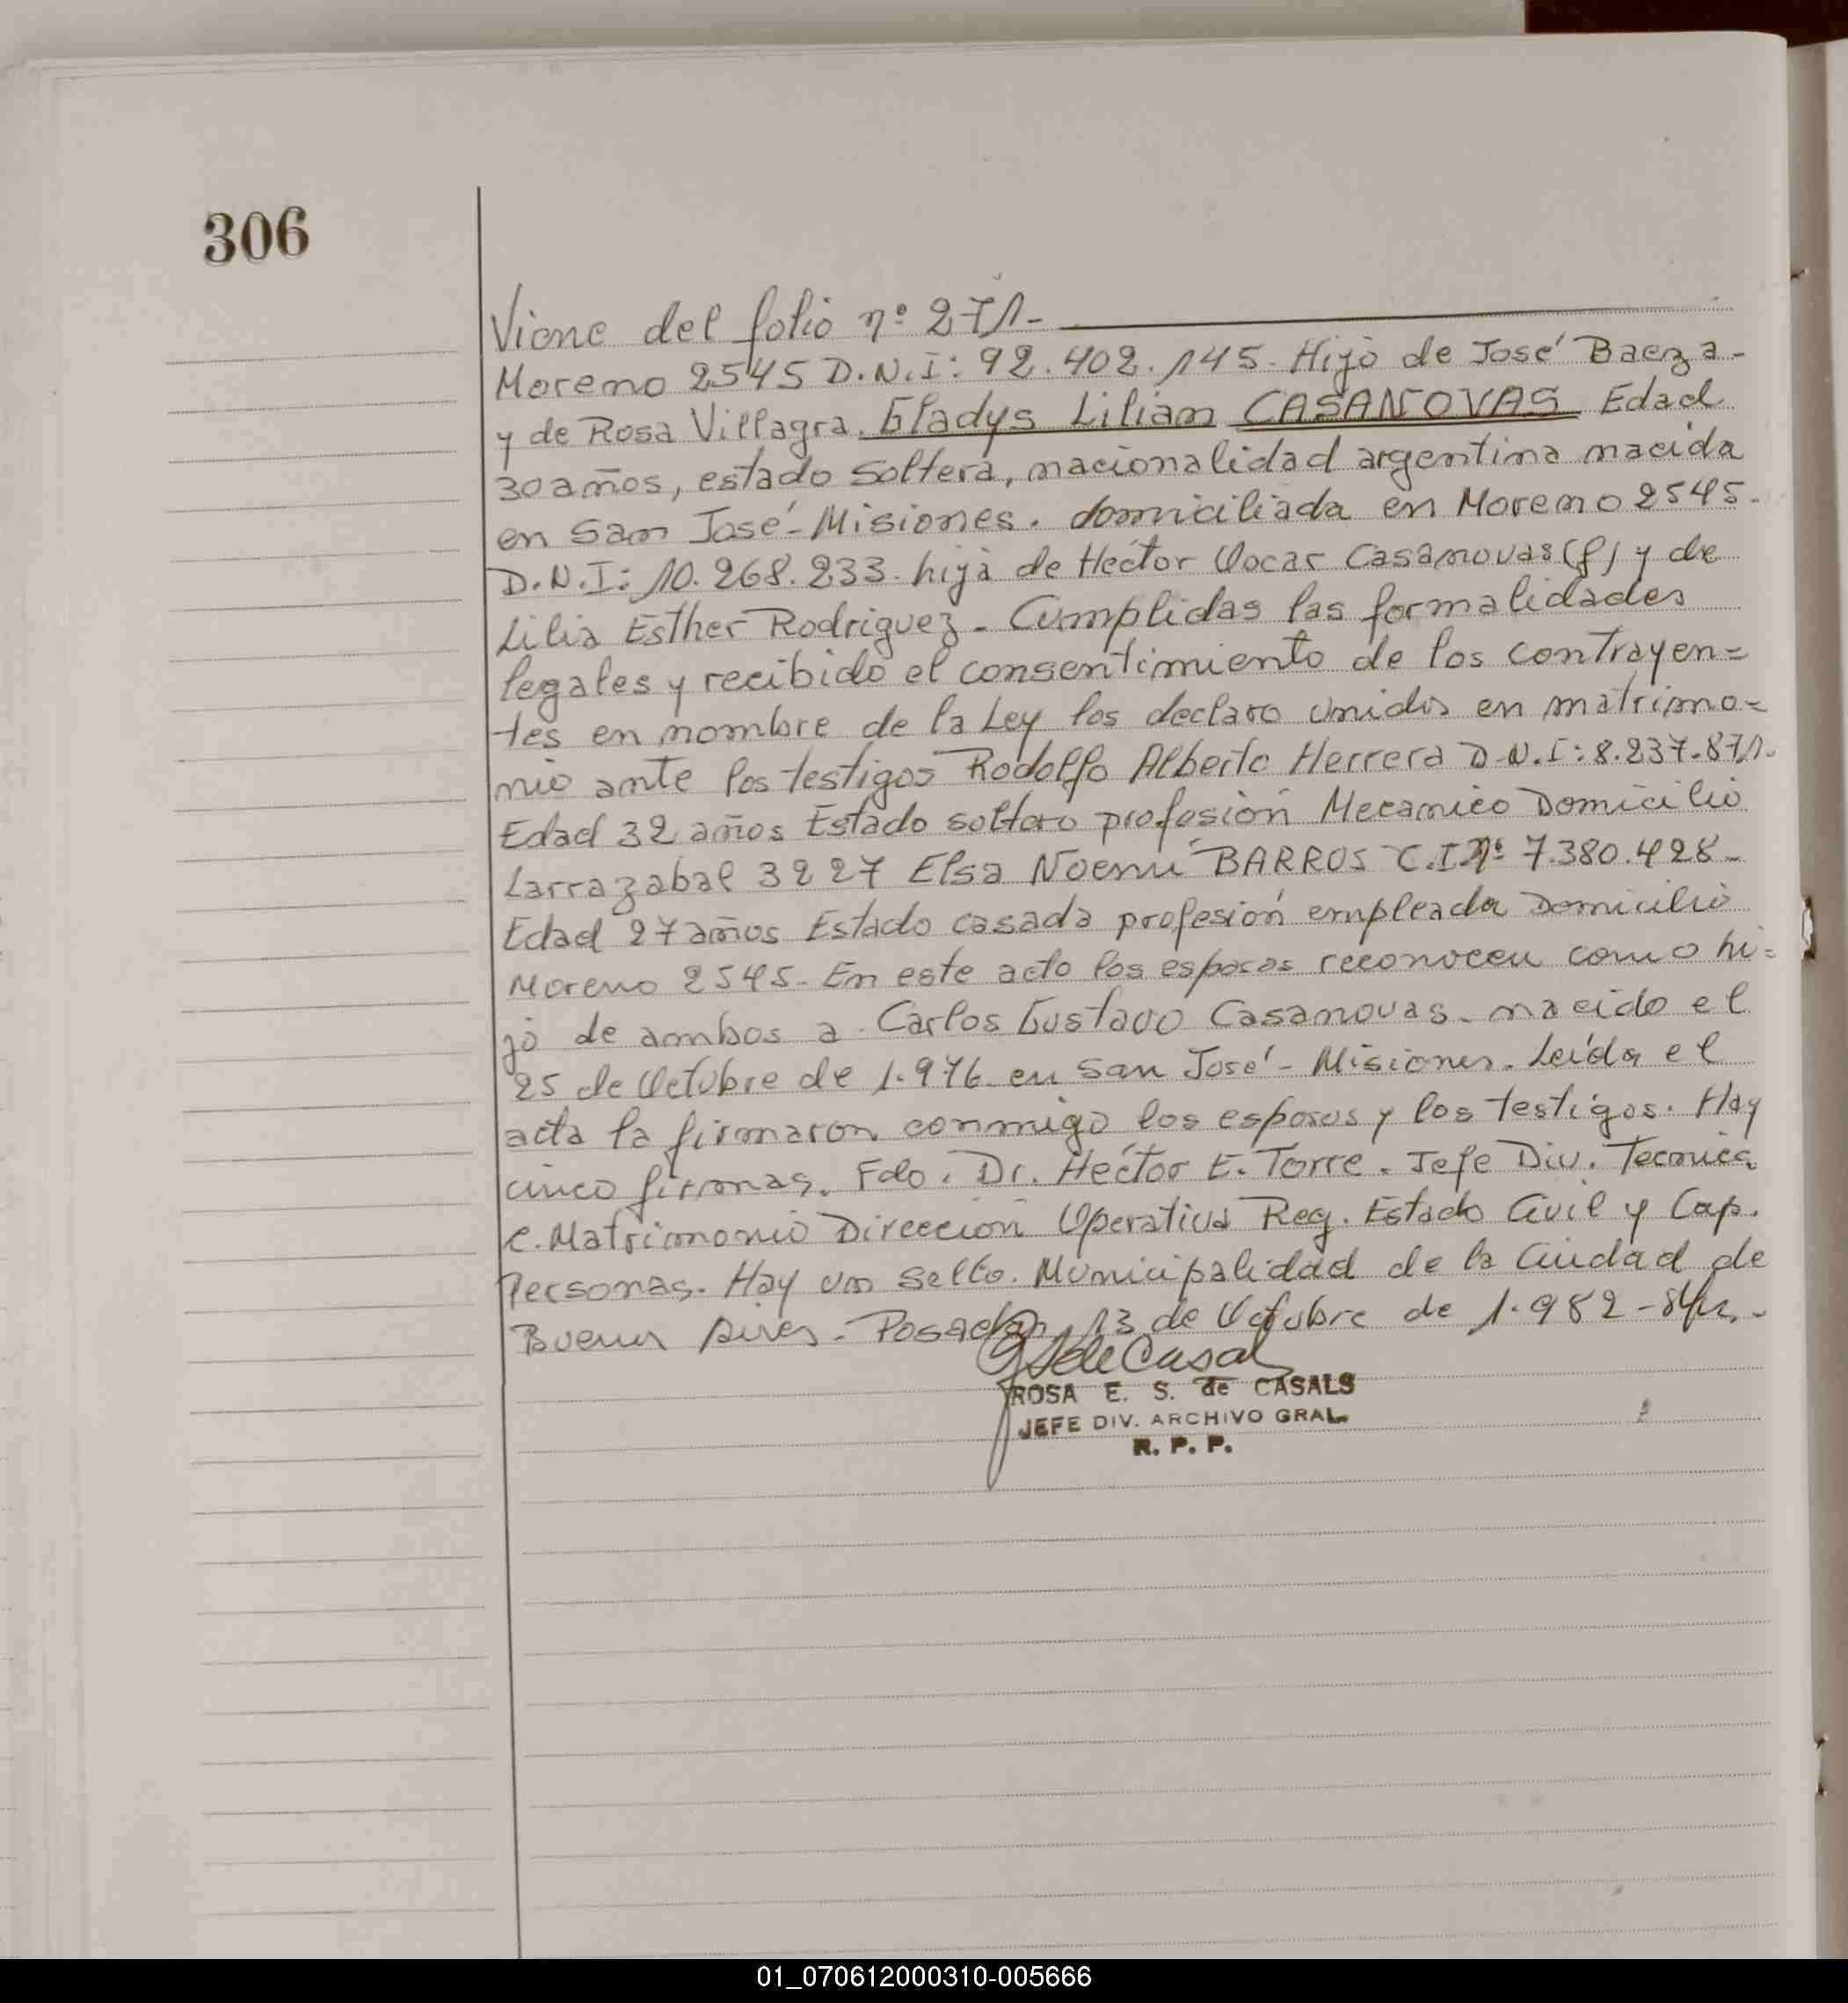 306
Viene del folio nº 271.-
Moreno 2545 D.N.I: 92.402.145. Hijo de José Baeza-
y de Rosa Villagra. Gladys Liliam CASANOVAS Edad
30 años, estado soltera, nacionalidad argentina nacida
en San José-Misiones. domiciliada en Moreno 2545.
D.N.I: 10.268.233. hija de Héctor Oocar Casanovas (f) y de
Lilia Esther Rodriguez. Cumplidas las formalidades
legales y recibido el consentimiento de los contrayen=
tes en nombre de la Ley los declaro unidos en matrimo=
nio ante los testigos Rodolfo Alberto Herrera D.N.I: 8.237.871.
Edad 32 años Estado soltero profesión Mecanico Domicilio
Larrazabal 3227 Elsa Noemí BARROS C.I Nº 7.380.428-
Edad 27 años Estado casada profesión empleada Domicilio
Moreno 2545. En este acto los esposos reconocen como hi=
jo de ambos a Carlos Gustavo Casanovas. nacido el
25 de Octubre de 1.976. en San José - Misiones. Leída el
acta la firmaron conmigo los esposos y los testigos. Hay
cinco firmas. Fdo. Dr. Héctor E. Torre. Jefe Div. Tecnica
e. Matrimonio Dirección Operativa Reg. Estado Civil y Cap.
Personas. Hay un sello. Municipalidad de la Ciudad de
Buenos Aires. Posadas, 13 de Octubre de 1.982-
ROSA E. S. de CASALS
JEFE DIV. ARCHIVO GRAL.
R. P. P.
01_070612000310-005666